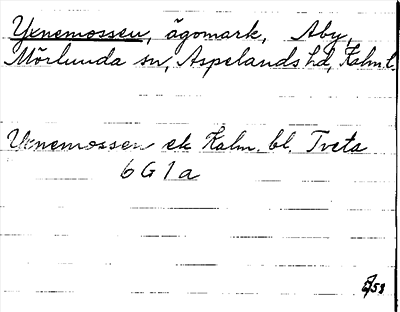 Yxnemossen, ägomark, Åby,
Mörlunda sn, Aspelands hd, Kalm. l.
Yxnemossen ek Kalm. bl. Tveta
6 G 1 a